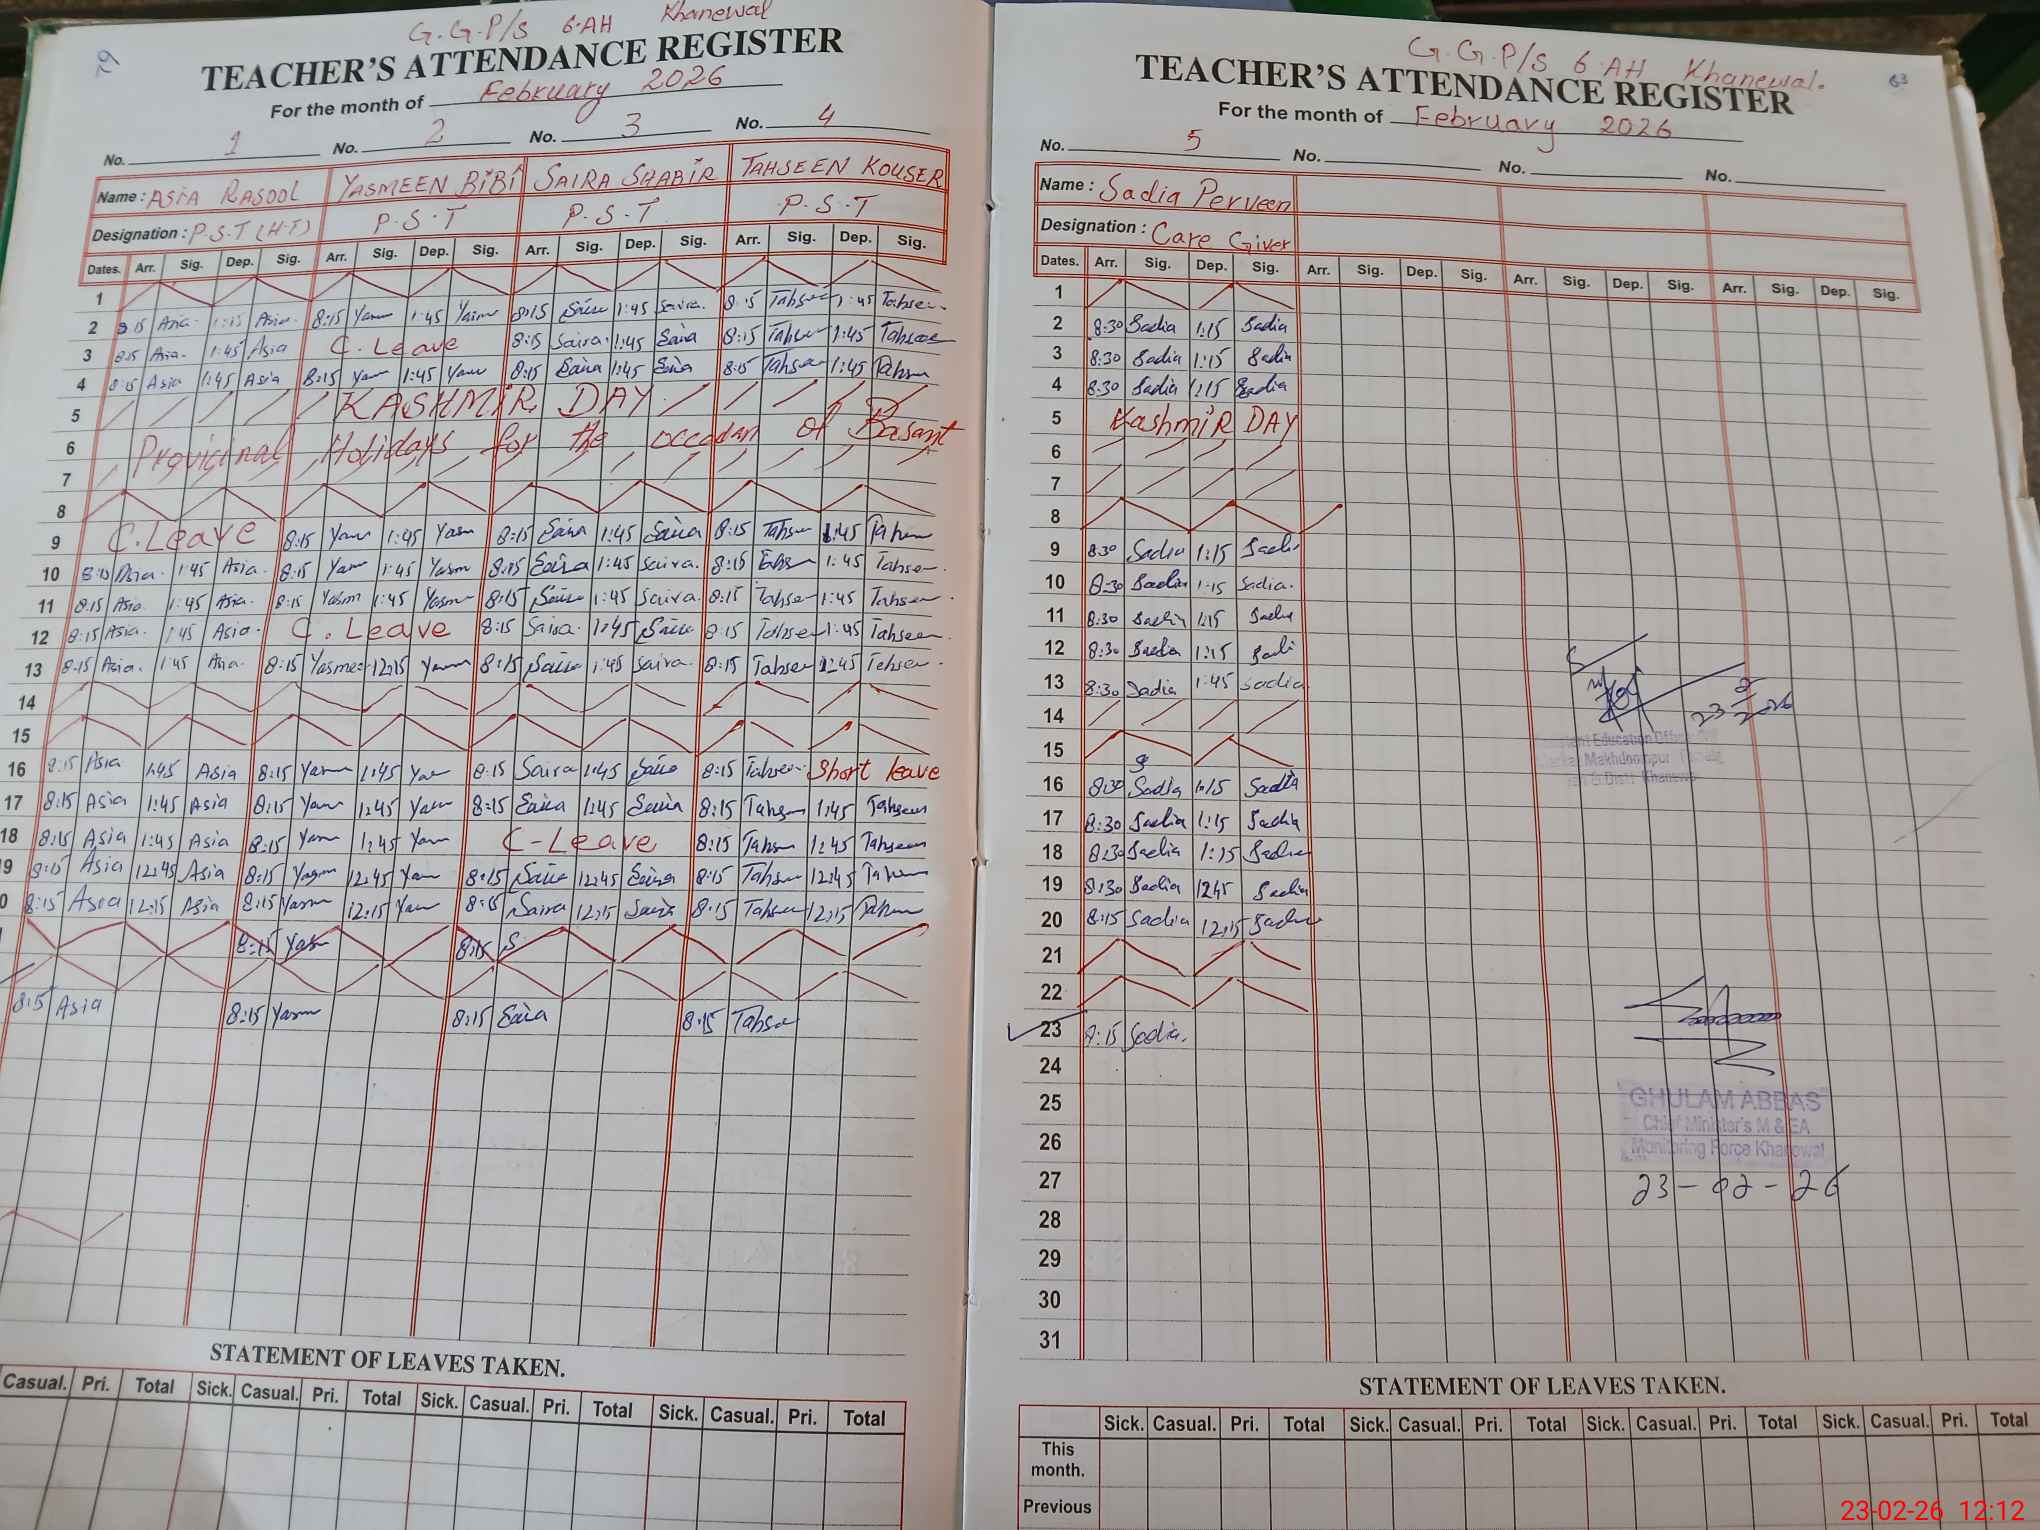 62
G.G.P/S 6.AH Khanewal
TEACHER'S ATTENDANCE REGISTER
For the month of February 2026
No. 1 No. 2 No. 3 No. 4
Name: ASiA RASOOL YASMEEN BiBi SAIRA SHABiR TAHSEEN KOUSER
Designation: P.S.T (H.T) P.S.T P.S.T P.S.T
Dates. Arr. Sig. Dep. Sig. Arr. Sig. Dep. Sig. Arr. Sig. Dep. Sig. Arr. Sig. Dep. Sig.
1
2 8:15 Asia 8:15 Yasm 1:45 Yasm 8:15 Saira 1:45 Saira. 8:15 Tahseen 1:45 Tahseen.
3 8:15 Asia. 1:45 Asia C. Leave 8:15 Saira. 1:45 Saira 8:15 Tahseen 1:45 Tahseen
4 8:15 Asia 1:45 Asia 8:15 Yasm 1:45 Yasm 8:15 Saira 1:45 Saira 8:15 Tahseen 1:45 Tahseen
5 KASHMiR DAY
6 Holidays for the of Basant
7
8
9 C.Leave 8:15 Yasm 1:45 Yasm 8:15 Saira 1:45 Saira 8:15 Tahseen 1:45 Tahseen
10 8:15 Asia. 1:45 Asia. 8:15 Yasm 1:45 Yasm 8:15 Saira 1:45 Saira. 8:15 Tahseen 1:45 Tahseen.
11 8:15 Asia. 1:45 Asia. 8:15 Yasm 1:45 Yasm 8:15 Saira 1:45 Saira. 8:15 Tahseen 1:45 Tahseen.
12 8:15 Asia. 1:45 Asia. C. Leave 8:15 Saira. 1:45 Saira 8:15 Tahseen 1:45 Tahseen.
13 8:15 Asia. 1:45 Asia. 8:15 Yasmee 12:15 Yasm 8:15 Saira 1:45 Saira. 8:15 Tahseen 12:45 Tahseen.
14
15
16 8:15 Asia 1:45 Asia 8:15 Yasm 1:45 Yasm 8:15 Saira 1:45 Saira 8:15 Tahseen Short leave
17 8:15 Asia 1:45 Asia 8:15 Yasm 1:45 Yasm 8:15 Saira 1:45 Saira 8:15 Tahseen 1:45 Tahseen
18 8:15 Asia 1:45 Asia 8:15 Yasm 1:45 Yasm C-Leave 8:15 Tahseen 1:45 Tahseen
9 8:15 Asia 12:45 Asia 8:15 Yasm 12:45 Yasm 8:15 Saira 12:45 Saira 8:15 Tahseen 12:45 Tahseen
0 8:15 Asia 12:15 Asia 8:15 Yasm 12:15 Yasm 8:15 Saira 12:15 Saira 8:15 Tahseen 12:15 Tahseen
8:15 Yasm 8:15 S
8:15 Asia 8:15 Yasm 8:15 Saira 8:15 Tahseen
STATEMENT OF LEAVES TAKEN.
Casual. Pri. Total Sick. Casual. Pri. Total Sick. Casual. Pri. Total Sick. Casual. Pri. Total
G.G.P/S 6.AH Khanewal. 63
TEACHER'S ATTENDANCE REGISTER
For the month of February 2026
No. 5 No. No. No.
Name: Sadia Perveen
Designation: Care Giver
Dates. Arr. Sig. Dep. Sig. Arr. Sig. Dep. Sig. Arr. Sig. Dep. Sig. Arr. Sig. Dep. Sig.
1
2 8:30 Sadia 1:15 Sadia
3 8:30 Sadia 1:15 Sadia
4 8:30 Sadia 1:15 Sadia
5 KashmiR DAY
6
7
8
9 8:30 Sadia 1:15 Sadia
10 8:30 Sadia 1:15 Sadia.
11 8:30 Sadia 1:15 Sadia
12 8:30 Sadia 1:15 Sadia
13 8:30 Sadia 1:45 Sadia
14
15
16 8:30 Sadia 1:15 Sadia
17 8:30 Sadia 1:15 Sadia
18 8:30 Sadia 1:15 Sadia
19 8:30 Sadia 12:45 Sadia
20 8:15 Sadia 12:15 Sadia
21
22
23 8:15 Sadia.
24
25
26
27
28
29
30
31
23 2 2026
Education Officer
Makhdoompur
Distt. Khanewal
GHULAM ABBAS
Chief Minister's M & EA
Monitoring Force Khanewal
23-02-26
STATEMENT OF LEAVES TAKEN.
Sick. Casual. Pri. Total Sick. Casual. Pri. Total Sick. Casual. Pri. Total Sick. Casual. Pri. Total
This month.
Previous
23-02-26 12:12